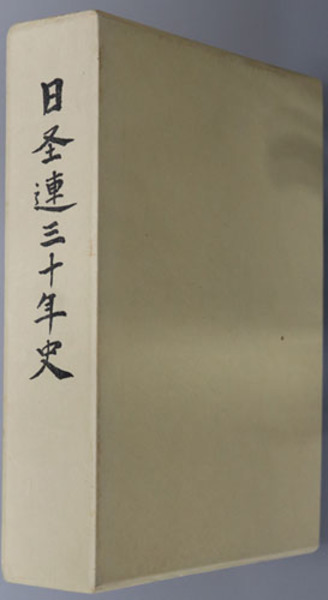 日圣連三十年史